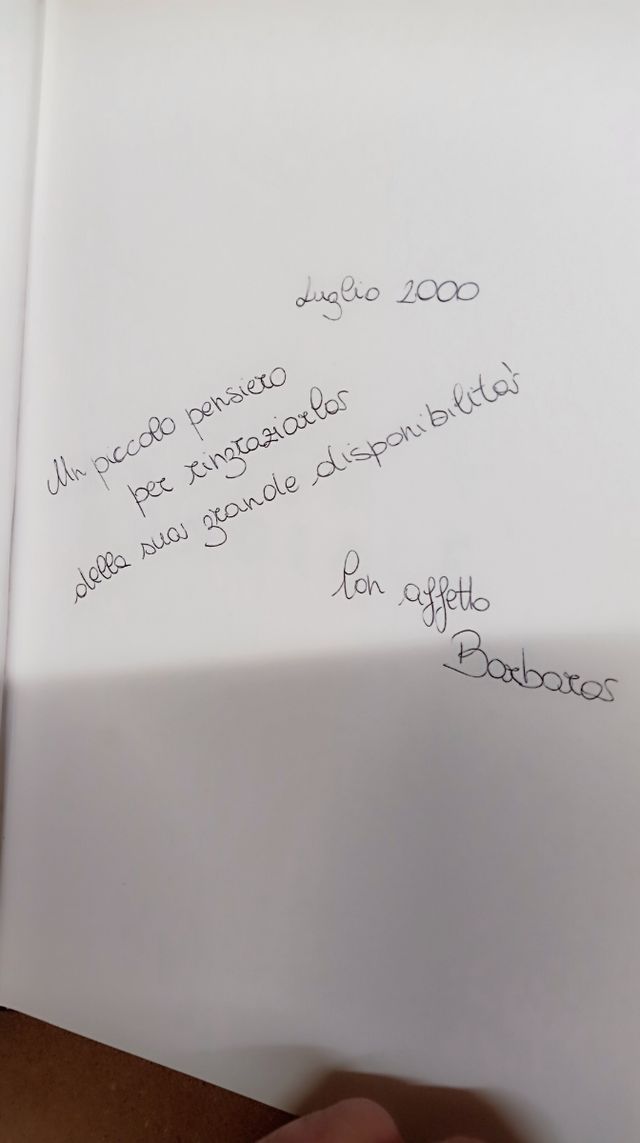 Luglio 2000
Un piccolo pensiero
per ringraziarla
della sua grande disponibilità
Con affetto
Barbara